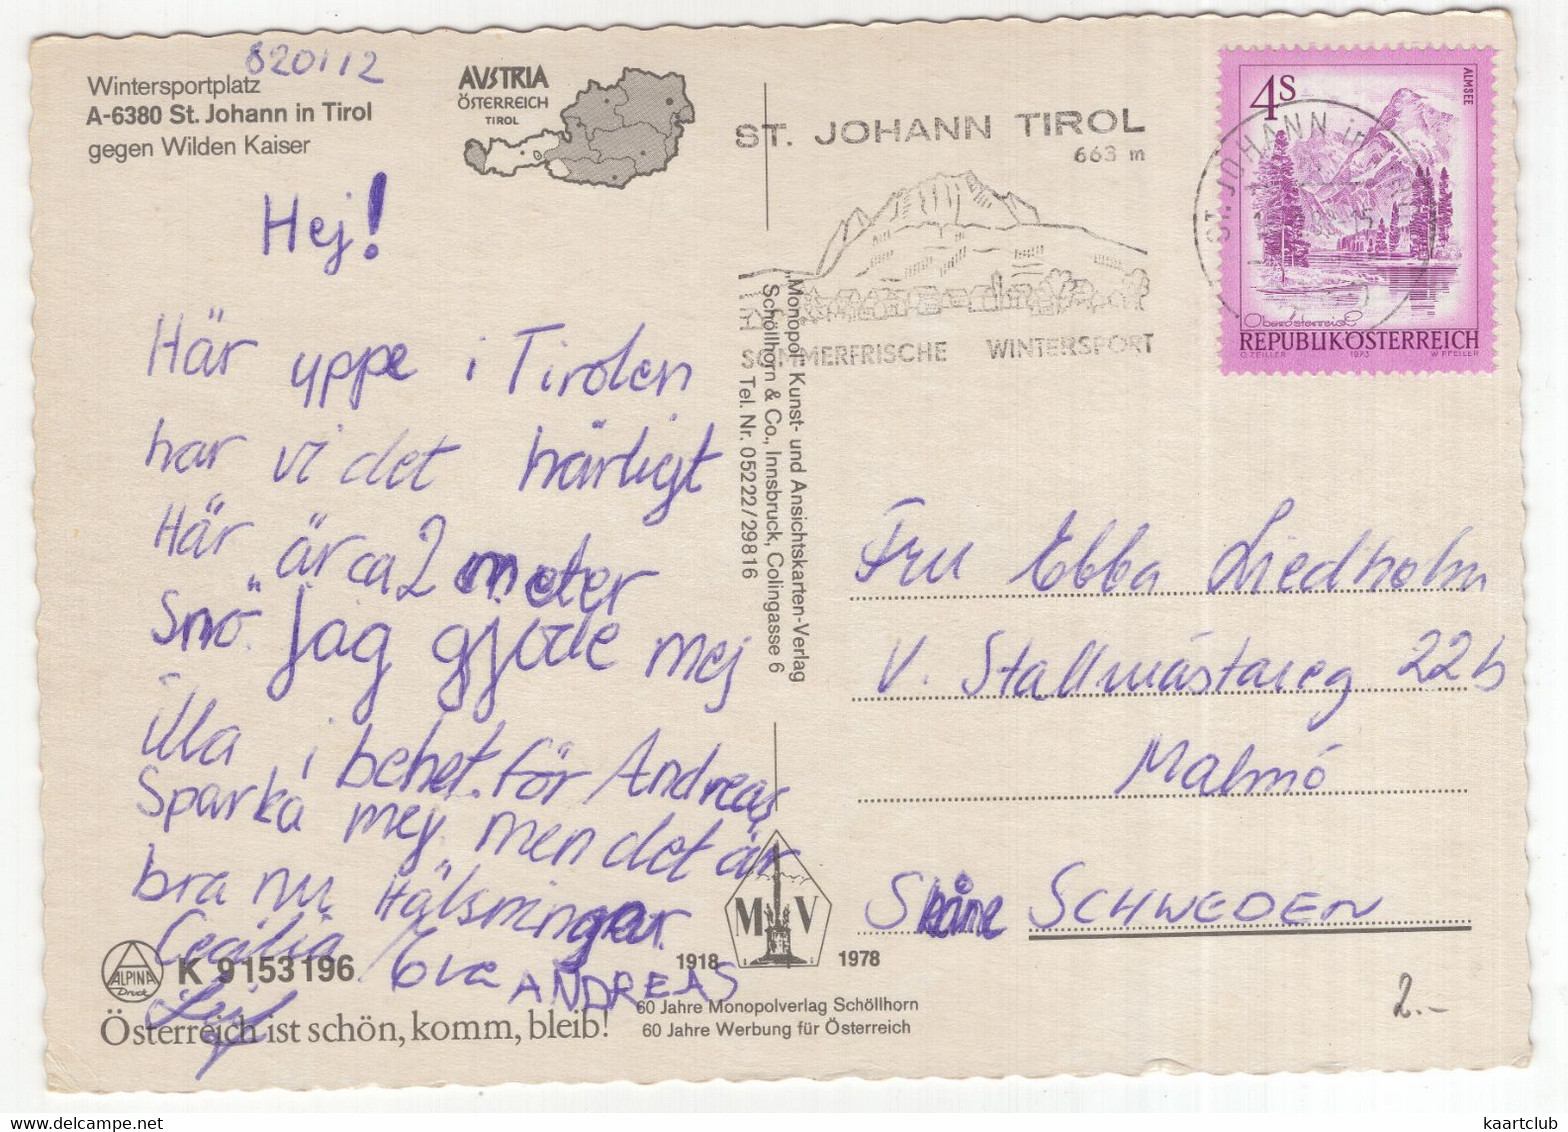 820112
Wintersportplatz
A-6380 St. Johann in Tirol
gegen Wilden Kaiser
AUSTRIA
ÖSTERREICH
TIROL
Hej!
Här uppe i Tirolen
har vi det härligt
Här är ca 2 meter
Snö. Jag gjode mej
illa i behet. för Andreas
Sparka mej men det är
bra nu Hälsningar
Cecilia / Eva ANDREAS
Leif
ALPINA
Druck
K 9153196
Österreich ist schön, komm, bleib!
"Monopol" Kunst- und Ansichtskarten-Verlag
Schöllhorn & Co., Innsbruck, Colingasse 6
Tel. Nr. 05222/29816
M V
1918 1978
60 Jahre Monopolverlag Schöllhorn
60 Jahre Werbung für Österreich
ST. JOHANN TIROL
663 m
SOMMERFRISCHE WINTERSPORT
ST. JOHANN in TIROL
4S
ALMSEE
Oberösterreich
REPUBLIK ÖSTERREICH
O. ZEILLER 1973 W. PFEILER
Fru Ebba Liedholm
V. Stallmästareg 22b
Malmö
Skåne SCHWEDEN
2.-
kaartclub